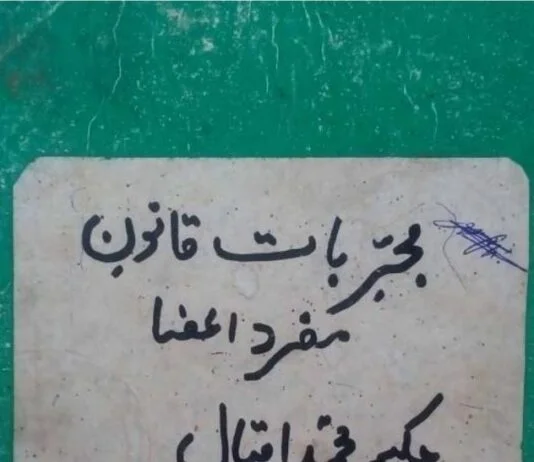 مجرّبات قانون
مفرد اعضا
حکیم محمد اقبال